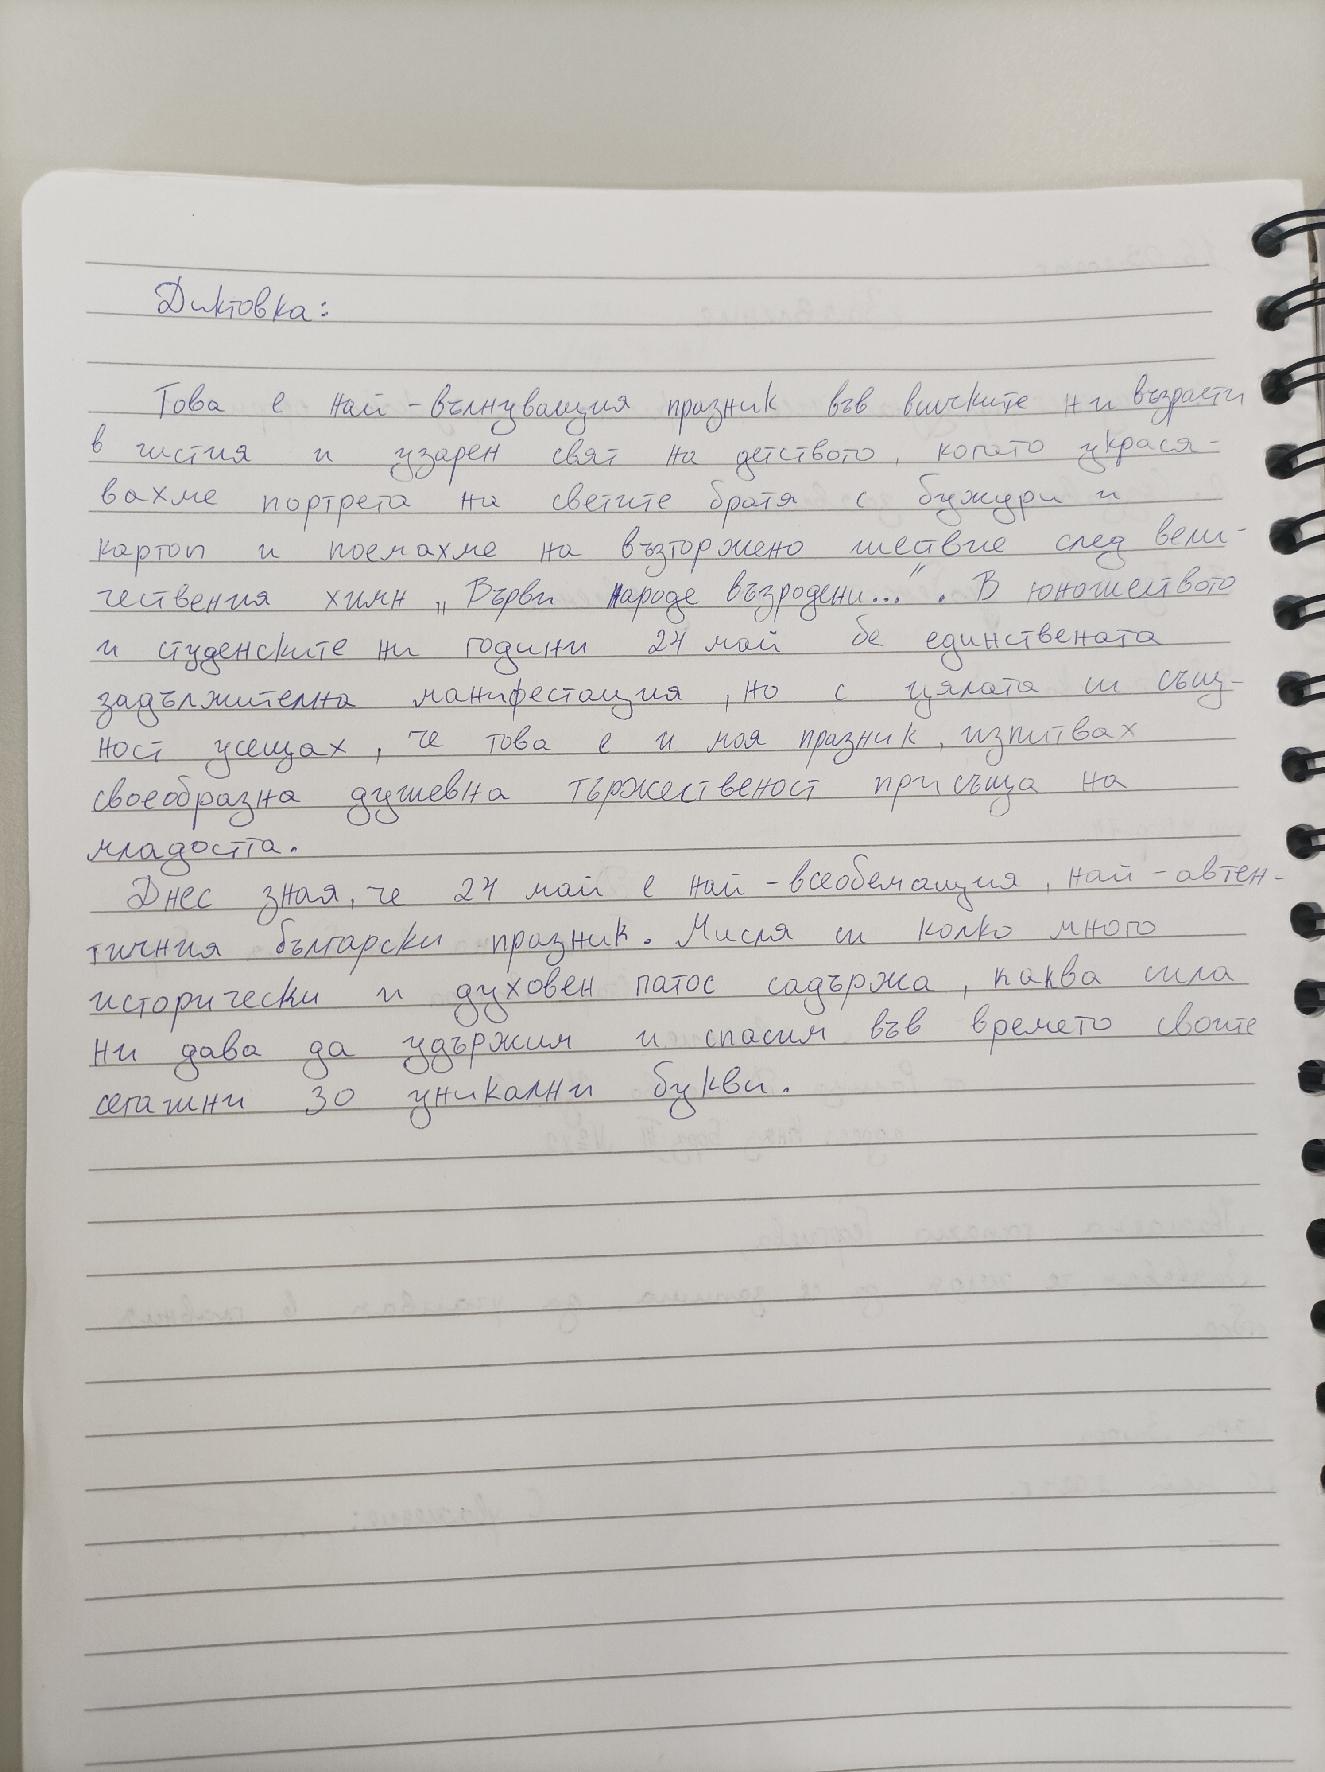 Диктовка:
Това е най-вълнуващия празник във всичките ни възрасти
в чистия и узарен свят на детството, когато украся-
вахме портрета на светите братя с бужури и
картоп и поемахме на възторжено шествие след вели-
чествения химн „Върви народе възродени...". В юношеството
и студенските ни години 24 май бе единствената
задължителна манифестация, но с цялата си същ-
ност усещах, че това е и моя празник, изпитвах
своеобразна душевна тържественост присъща на
младостта.
Днес зная, че 24 май е най-всеобемащия, най-автен-
тичния български празник. Мисля си колко много
исторически и духовен патос садържа, каква сила
ни дава да удържим и спасим във времето своите
сегашни 30 уникални букви.